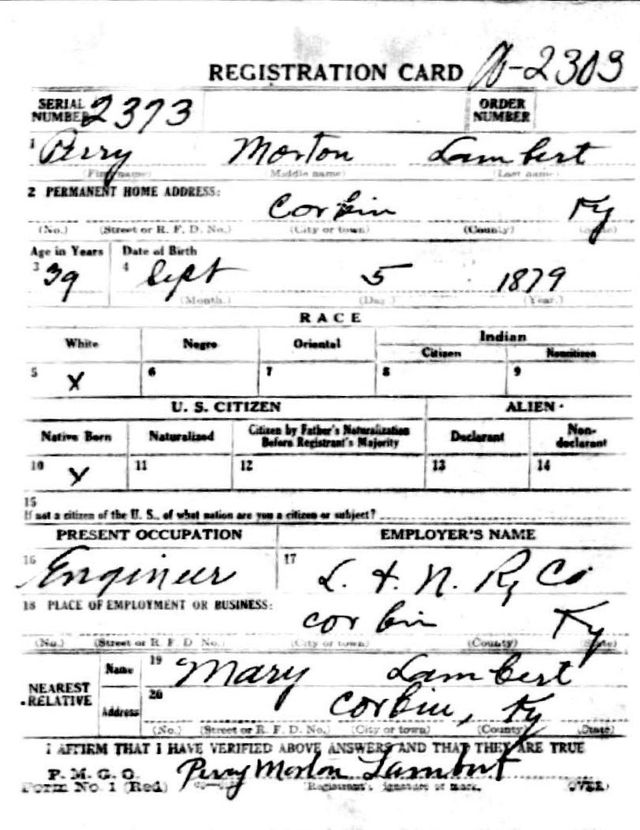 REGISTRATION CARD A-2303
SERIAL NUMBER 2373 ORDER NUMBER
1 Perry Morton Lambert
(First name) (Middle name) (Last name)
2 PERMANENT HOME ADDRESS:
Corbin Ky
(No.) (Street or R. F. D. No.) (City or town) (County) (State)
Age in Years Date of Birth
3 39 4 Sept 5 1879
(Month.) (Day.) (Year.)
RACE
White Negro Oriental Indian
Citizen Noncitizen
5 X 6 7 8 9
U. S. CITIZEN ALIEN
Native Born Naturalized Citizen by Father's Naturalization Before Registrant's Majority Declarant Non-declarant
10 X 11 12 13 14
15
If not a citizen of the U. S., of what nation are you a citizen or subject?
PRESENT OCCUPATION EMPLOYER'S NAME
16 Engineer 17 L. & N. Ry Co
18 PLACE OF EMPLOYMENT OR BUSINESS:
Corbin Ky
(No.) (Street or R. F. D. No.) (City or town) (County) (State)
NEAREST RELATIVE Name 19 Mary Lambert
Address 20 Corbin, Ky
(No.) (Street or R. F. D. No.) (City or town) (County) (State)
I AFFIRM THAT I HAVE VERIFIED ABOVE ANSWERS AND THAT THEY ARE TRUE
P. M. G. O.
Form No. 1 (Red) Perry Morton Lambert
(Registrant's signature or mark.) (OVER)